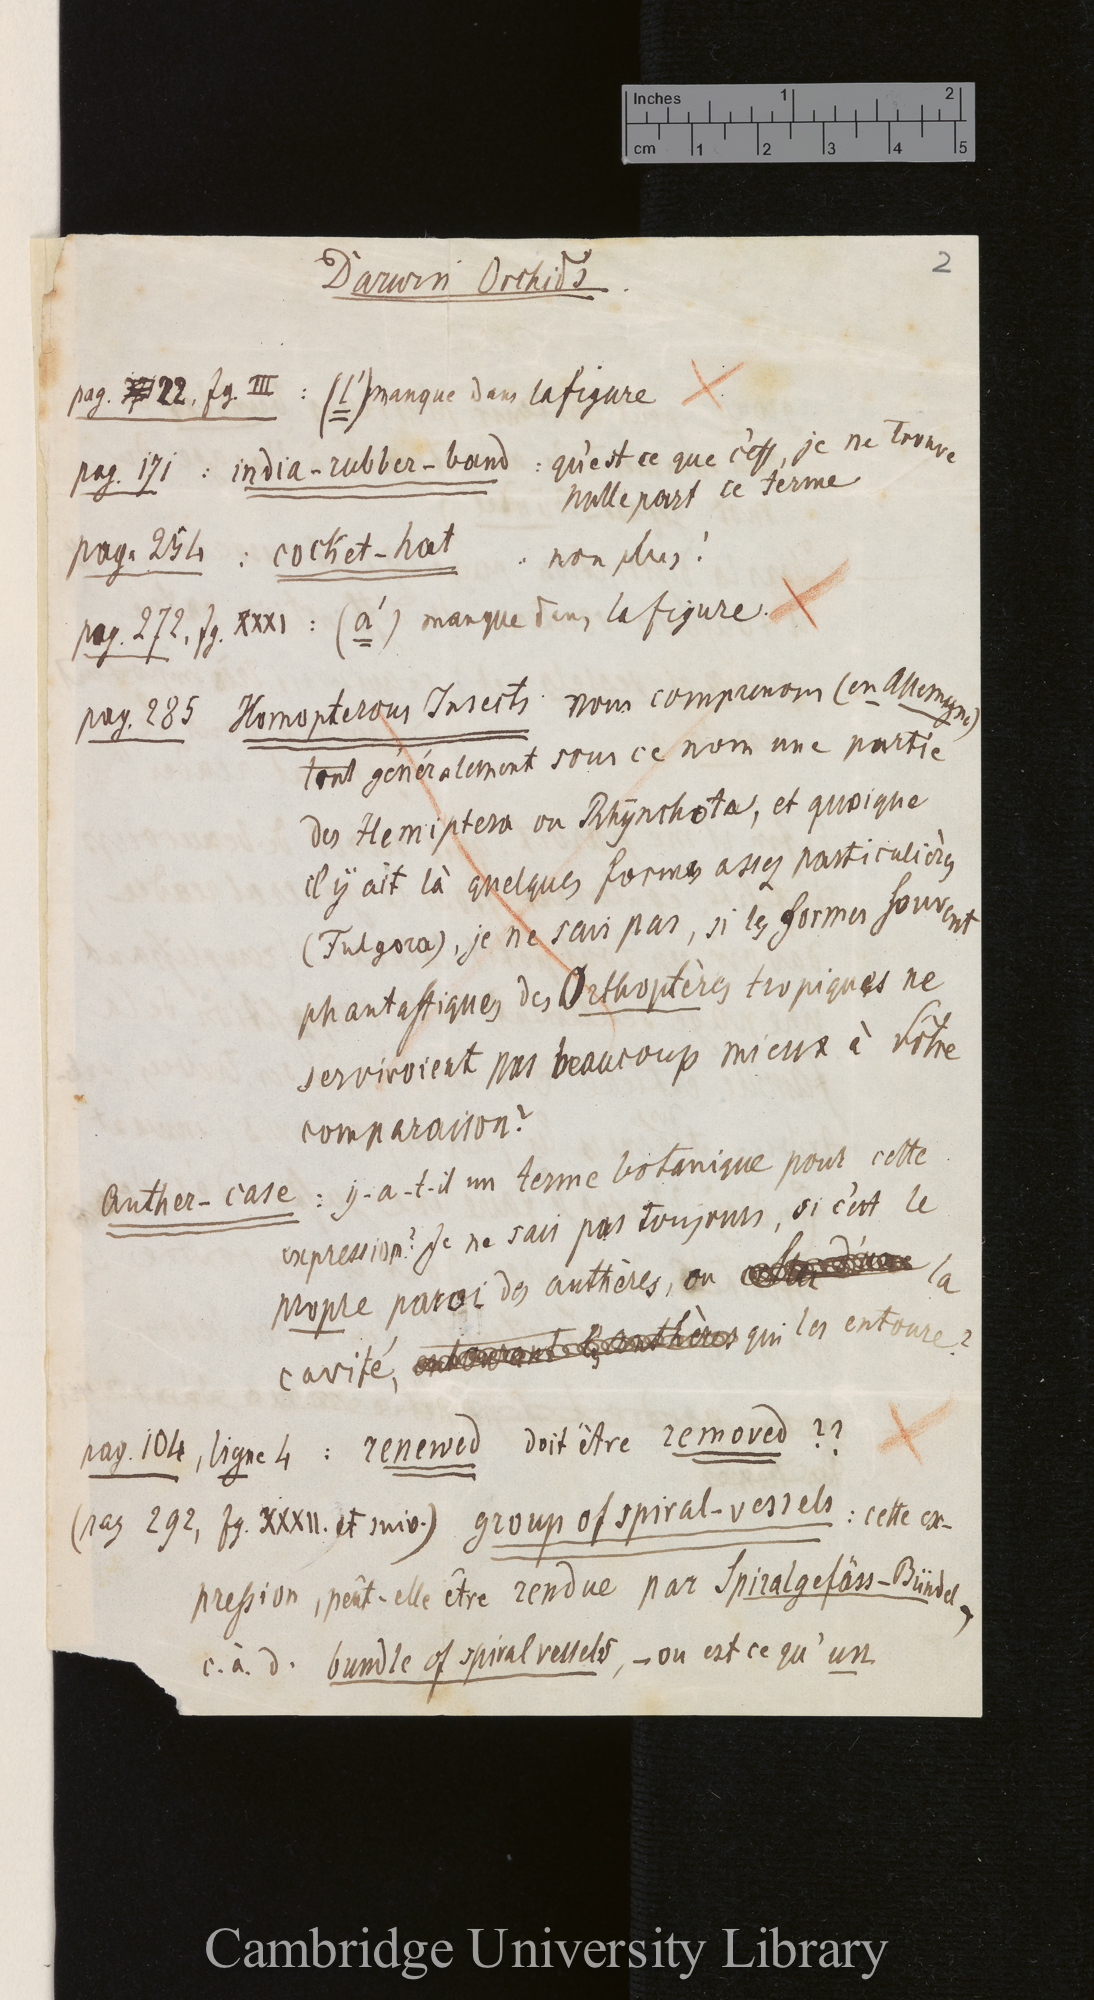 Inches 1 2
cm 1 2 3 4 5
2
Darwin Orchids.
pag. 22, fg. III : (l') manque dans la figure
pag. 171 : india-rubber-band : qu'est ce que c'est, je ne trouve
nulle part ce terme
pag. 254 : cocket-hat : non plus!
pag. 272, fg. XXXI : (a') manque dans la figure.
pag. 285 Homopterous Insects: nous comprenons (en Allemagne)
tout généralement sous ce nom une partie
des Hemiptera ou Rhynchota, et quoique
il y ait là quelques formes assez particulières
(Fulgora), je ne sais pas, si les formes souvent
phantastiques des Orthoptères tropiques ne
serviroient pas beaucoup mieux à Vôtre
comparaison?
Anther-case : y-a-t-il un terme botanique pour cette
expression? Je ne sais pas toujours, si c'est le
propre paroi des anthères, ou la
cavité, entourant les anthères qui les entoure?
pag. 104, ligne 4 : renewed doit être removed ??
(pag 292, fg. XXXII. et suiv.) group of spiral-vessels : cette ex-
pression, peût-elle être rendue par Spiralgefäss-Bündel,
c. à. d. bundle of spiral vessels, - ou est ce qu' un
Cambridge University Library